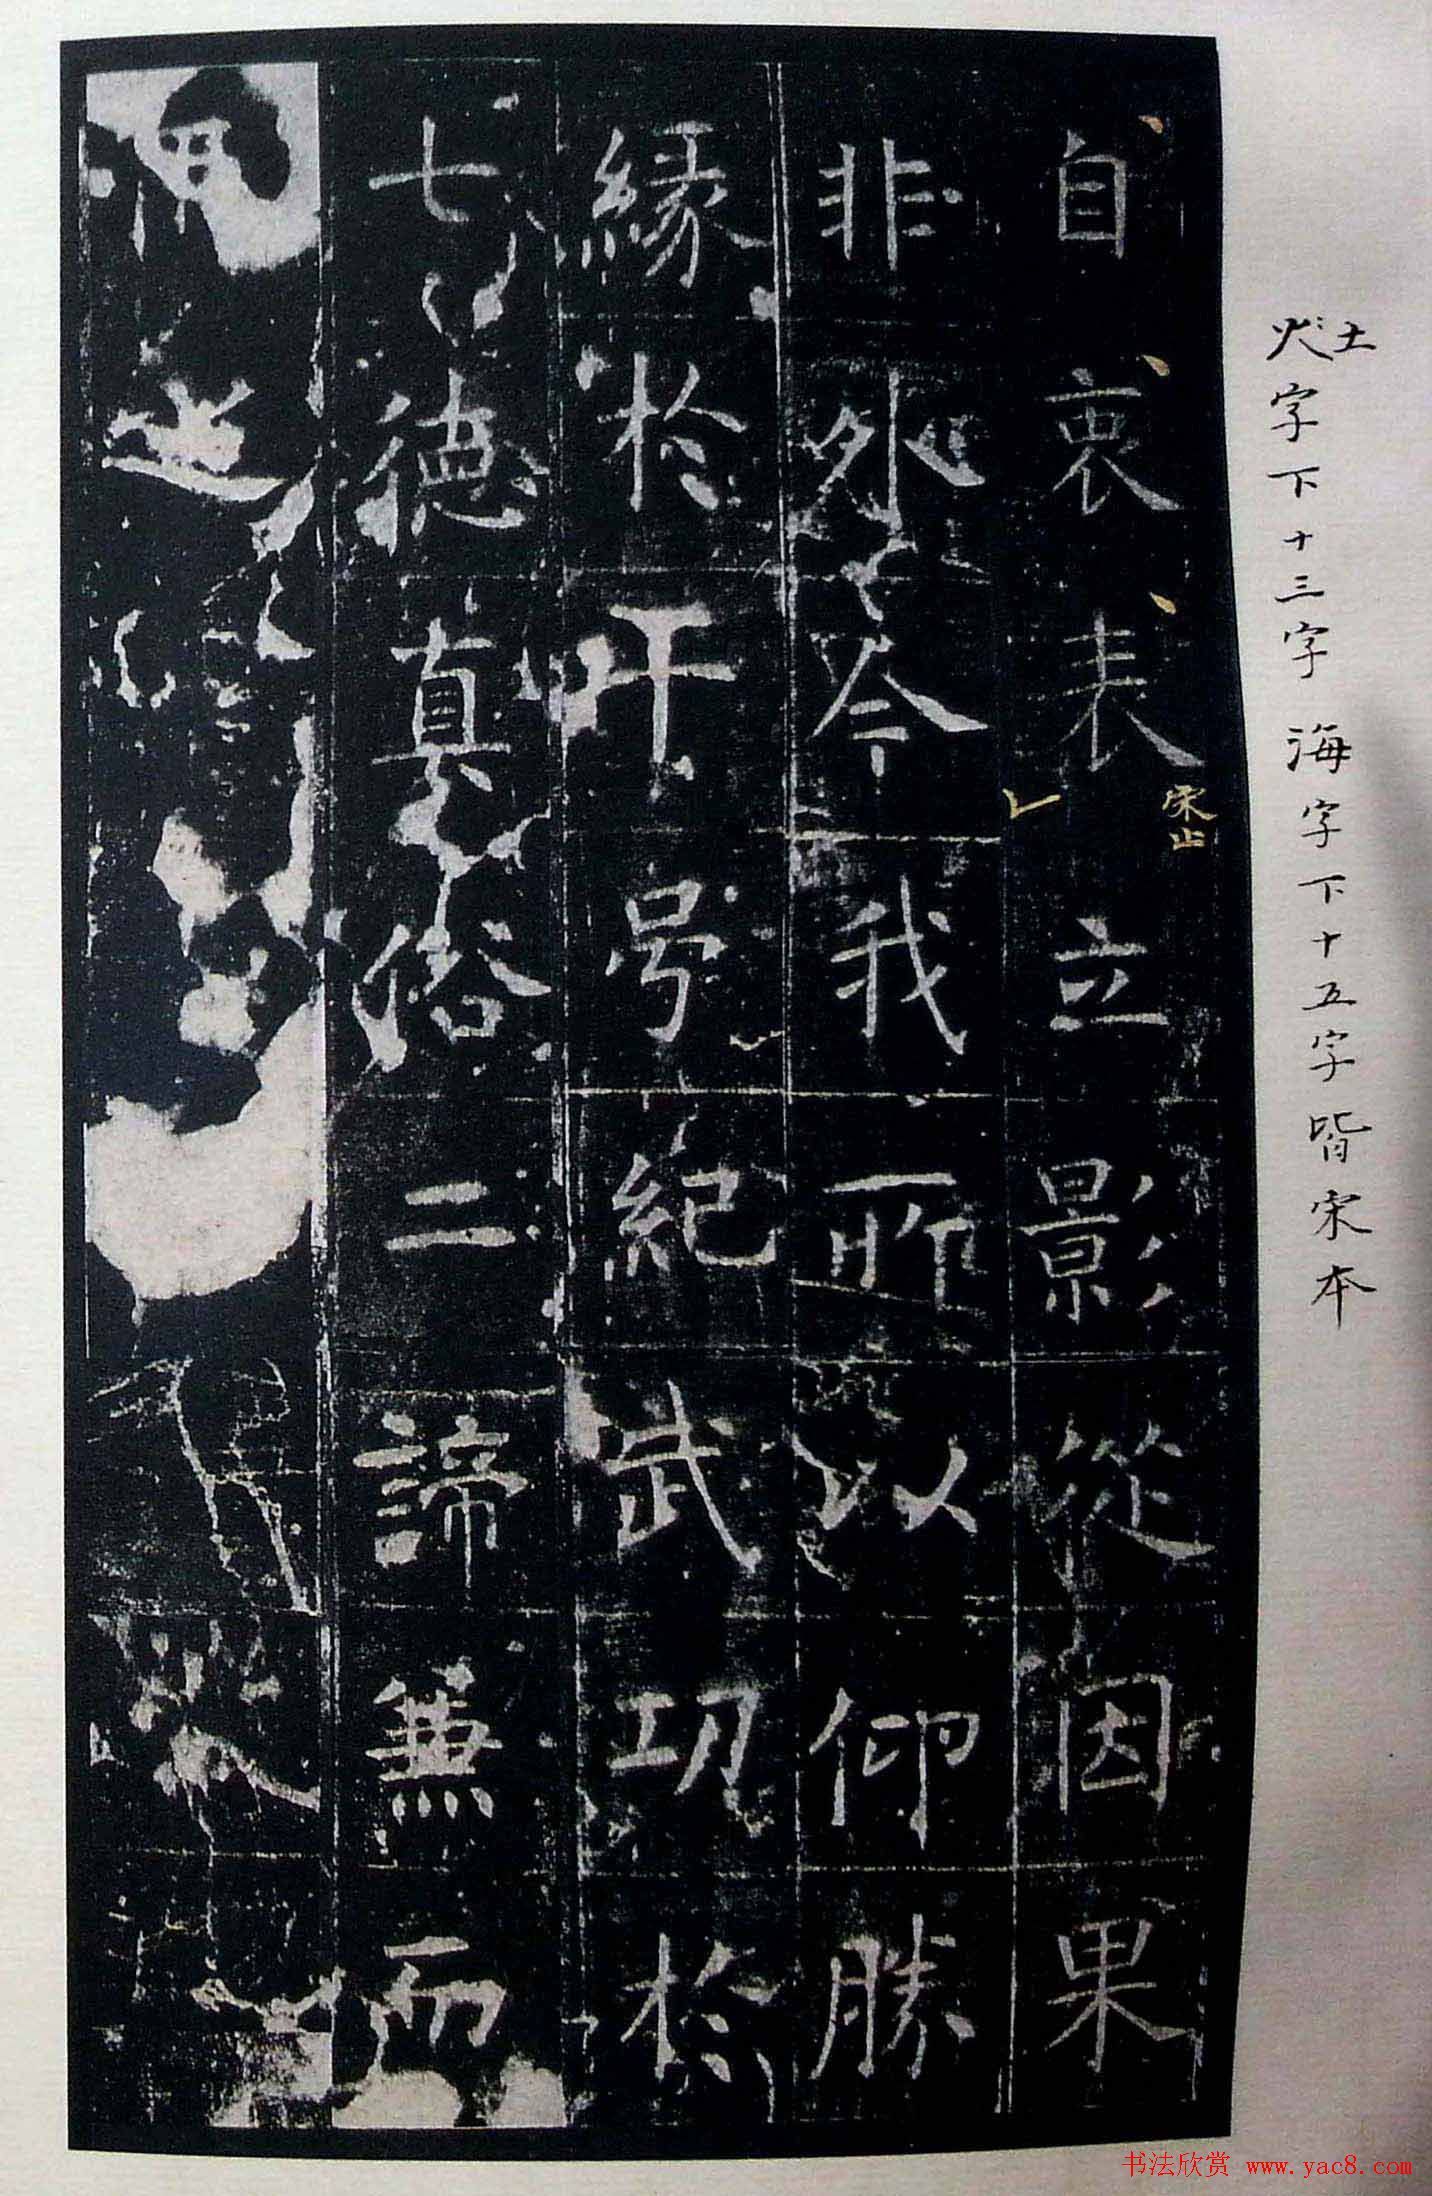 火土字下十三字海字下十五字皆宋本
自哀表立影從因果
宋止
非外今我所以仰勝
緣於吁号紀武功於
七德真俗二諦兼而
書法欣赏 www.yac8.com